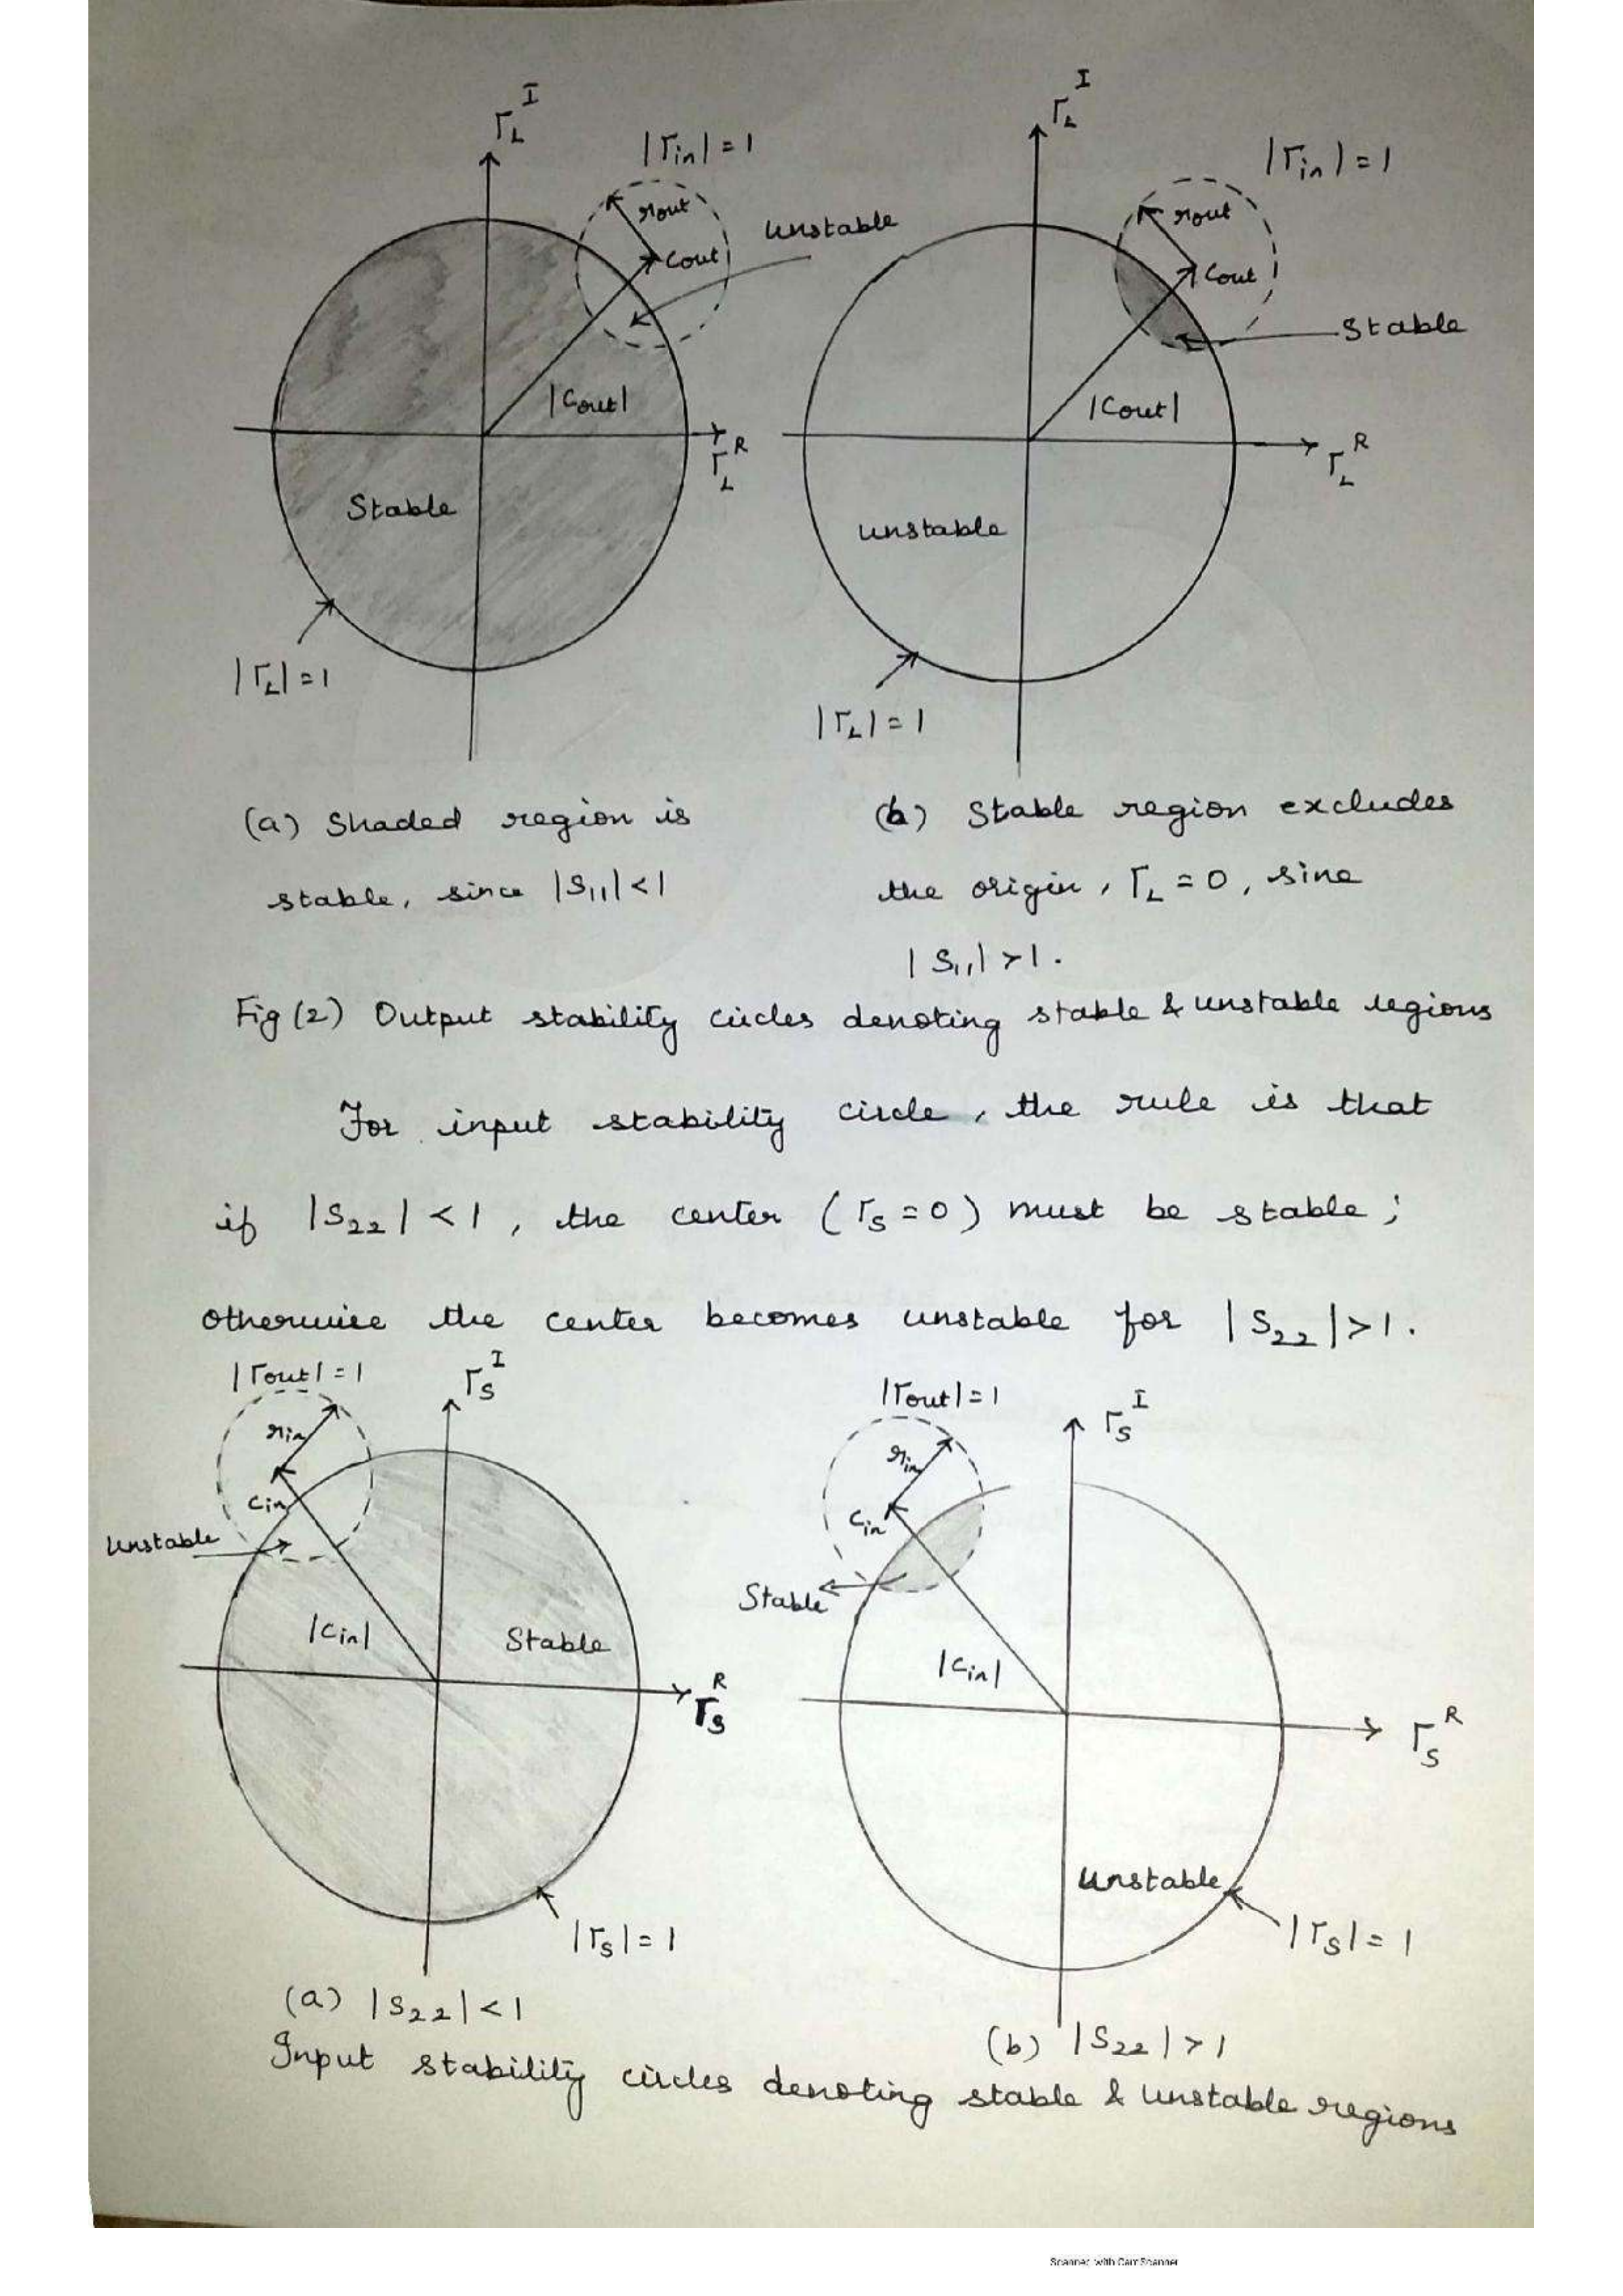 Γ_L^I
|Γin| = 1
rout
Cout
unstable
|Cout|
Γ_L^R
Stable
|Γ_L| = 1
Γ_L^I
|Γin| = 1
rout
Cout
Stable
|Cout|
Γ_L^R
unstable
|Γ_L| = 1
(a) Shaded region is
stable, since |S11| < 1
(b) Stable region excludes
the origin, Γ_L = 0, sine
|S11| > 1.
Fig (2) Output stability circles denoting stable & unstable regions
For input stability circle, the rule is that
if |S22| < 1, the center (Γs = 0) must be stable;
otherwise the center becomes unstable for |S22| > 1.
|Γout| = 1
Γ_S^I
rin
Cin
Unstable
|Cin|
Stable
Γ_S^R
|Γs| = 1
(a) |S22| < 1
|Γout| = 1
Γ_S^I
rin
Cin
Stable
|Cin|
Γ_S^R
Unstable
|Γs| = 1
(b) |S22| > 1
Input stability circles denoting stable & unstable regions
Scanned with CamScanner